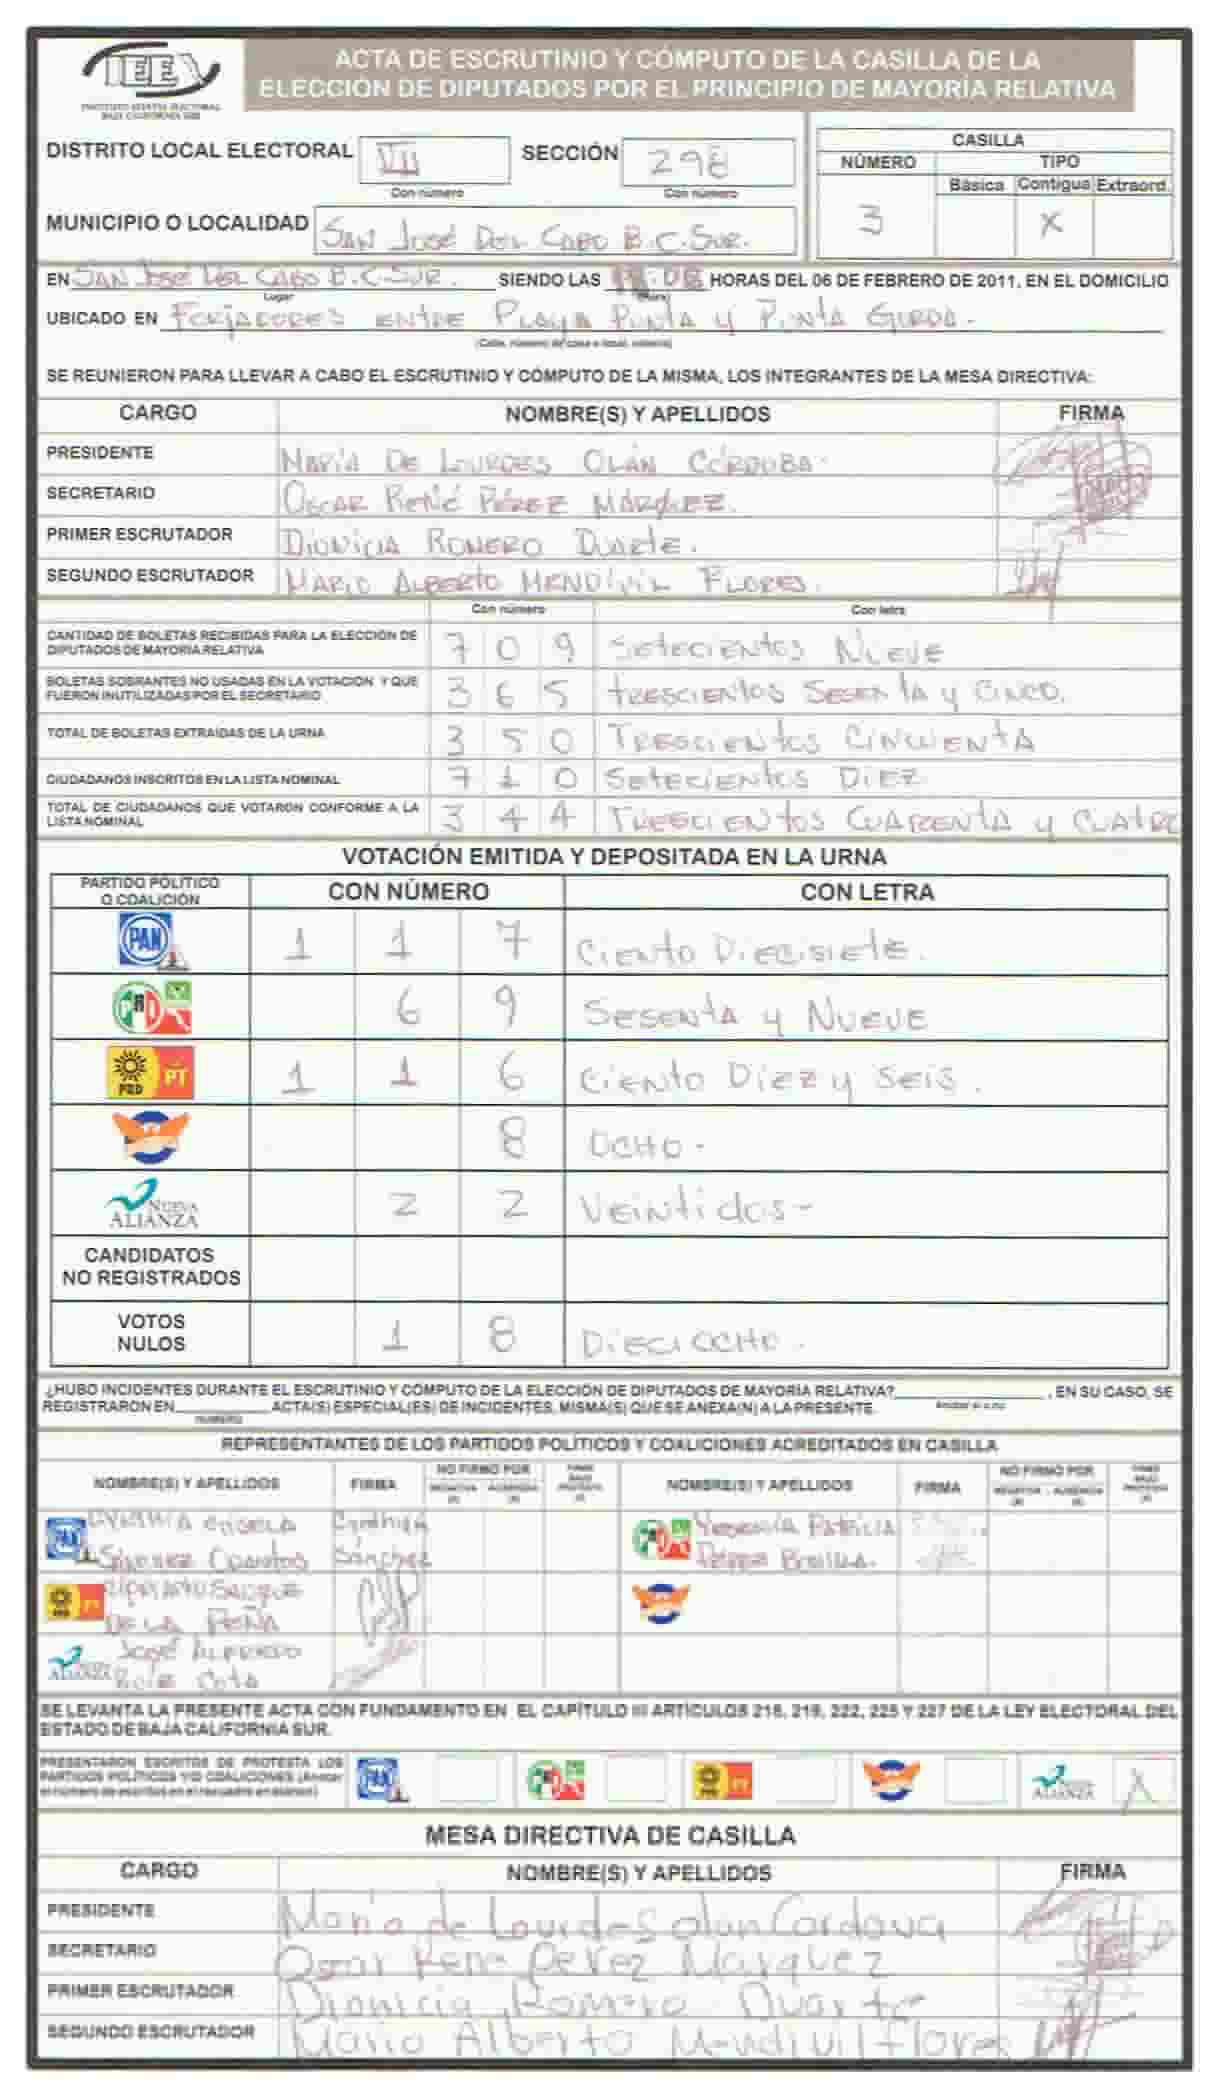 IEEBCS
INSTITUTO ESTATAL ELECTORAL
BAJA CALIFORNIA SUR
ACTA DE ESCRUTINIO Y CÓMPUTO DE LA CASILLA DE LA
ELECCIÓN DE DIPUTADOS POR EL PRINCIPIO DE MAYORÍA RELATIVA
DISTRITO LOCAL ELECTORAL VII SECCIÓN 298
Con número Con número
CASILLA
NÚMERO TIPO
Básica Contigua Extraord.
3 X
MUNICIPIO O LOCALIDAD SAN JOSÉ DEL CABO B.C.SUR.
EN SAN JOSÉ DEL CABO B.C.SUR. SIENDO LAS HORAS DEL 06 DE FEBRERO DE 2011, EN EL DOMICILIO
Lugar
UBICADO EN FORJADORES ENTRE PLAYA PUNTA Y PUNTA GORDA.
SE REUNIERON PARA LLEVAR A CABO EL ESCRUTINIO Y CÓMPUTO DE LA MISMA, LOS INTEGRANTES DE LA MESA DIRECTIVA:
CARGO NOMBRE(S) Y APELLIDOS FIRMA
PRESIDENTE MARÍA DE LOURDES OLÁN CÓRDOBA.
SECRETARIO OSCAR RENÉ PÉREZ MÁRQUEZ.
PRIMER ESCRUTADOR DIONICIA ROMERO DUARTE.
SEGUNDO ESCRUTADOR MARIO ALBERTO MENDÍVIL FLORES.
Con número Con letra
CANTIDAD DE BOLETAS RECIBIDAS PARA LA ELECCIÓN DE
DIPUTADOS DE MAYORÍA RELATIVA 7 0 9 SETECIENTOS NUEVE
BOLETAS SOBRANTES NO USADAS EN LA VOTACIÓN Y QUE
FUERON INUTILIZADAS POR EL SECRETARIO 3 6 5 TRESCIENTOS SESENTA Y CINCO.
TOTAL DE BOLETAS EXTRAÍDAS DE LA URNA 3 5 0 TRESCIENTOS CINCUENTA
CIUDADANOS INSCRITOS EN LA LISTA NOMINAL 7 1 0 SETECIENTOS DIEZ
TOTAL DE CIUDADANOS QUE VOTARON CONFORME A LA
LISTA NOMINAL 3 4 4 TRESCIENTOS CUARENTA Y CUATRO
VOTACIÓN EMITIDA Y DEPOSITADA EN LA URNA
PARTIDO POLÍTICO
O COALICIÓN CON NÚMERO CON LETRA
PAN 1 1 7 CIENTO DIECISIETE.
PRI 6 9 SESENTA Y NUEVE
PRD PT 1 1 6 CIENTO DIEZ Y SEIS.
8 OCHO-
NUEVA
ALIANZA 2 2 VEINTIDOS-
CANDIDATOS
NO REGISTRADOS
VOTOS
NULOS 1 8 DIECIOCHO.
¿HUBO INCIDENTES DURANTE EL ESCRUTINIO Y CÓMPUTO DE LA ELECCIÓN DE DIPUTADOS DE MAYORÍA RELATIVA? , EN SU CASO, SE
REGISTRARON EN ACTA(S) ESPECIAL(ES) DE INCIDENTES, MISMA(S) QUE SE ANEXA(N) A LA PRESENTE.
REPRESENTANTES DE LOS PARTIDOS POLÍTICOS Y COALICIONES ACREDITADOS EN CASILLA
NOMBRE(S) Y APELLIDOS FIRMA NO FIRMO POR NOMBRE(S) Y APELLIDOS FIRMA NO FIRMO POR
PAN CYNTHIA Cynthia YESENIA PATRICIA
SÁNCHEZ Sánchez BONILLA.
PRD PT
DE LA PEÑA
ALIANZA JOSÉ ALFREDO
COTA
SE LEVANTA LA PRESENTE ACTA CON FUNDAMENTO EN EL CAPÍTULO III ARTÍCULOS 218, 219, 222, 225 Y 227 DE LA LEY ELECTORAL DEL
ESTADO DE BAJA CALIFORNIA SUR.
PRESENTARON ESCRITOS DE PROTESTA LOS
PARTIDOS POLÍTICOS Y/O COALICIONES (Anotar
el número de escritos en el recuadro en blanco) PAN PRI PRD PT ALIANZA
MESA DIRECTIVA DE CASILLA
CARGO NOMBRE(S) Y APELLIDOS FIRMA
PRESIDENTE María de Lourdes olan Cordova
SECRETARIO Oscar Rene Perez Marquez
PRIMER ESCRUTADOR Dionicia Romero Duarte
SEGUNDO ESCRUTADOR Mario Alberto Mendivil flores